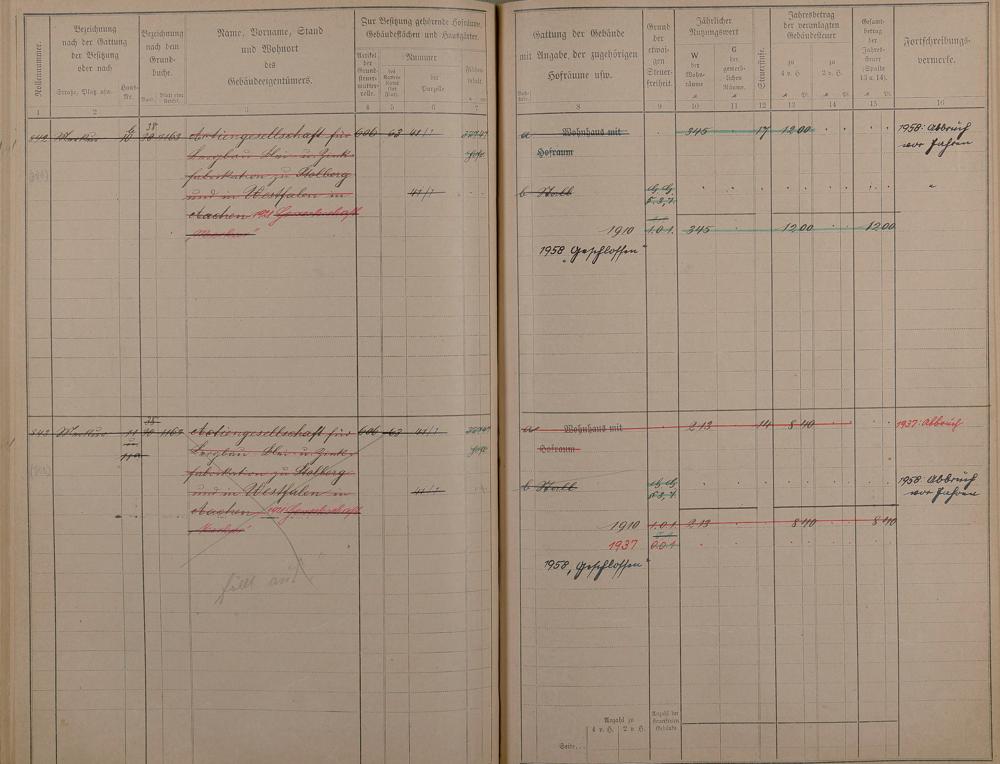 Rollennummer.
Bezeichnung
nach der Gattung
der Besitzung
oder nach
Straße, Platz usw.
Haus-
Nr.
Bezeichnung
nach dem
Grund-
buche.
Name, Vorname, Stand
und Wohnort
des
Gebäudeeigentümers.
Zur Besitzung gehörende Hofräume,
Gebäudeflächen und Hausgärten.
Artikel
der
Grund-
steuer-
mutter-
rolle.
Nummer
der
Parzelle
1
2
3
4
5
6
7
542
10
38
1163
Aktiengesellschaft für
606
63
41/1
Bergbau Blei u Zink-
fabrikation zu Stolberg
und in Westfalen in
41/1
Aachen 1921 Gewerkschaft
543
11
38
1163
Aktiengesellschaft für
606
63
41/1
11a
Bergbau Blei u Zink-
fabrikation zu Stolberg
und in Westfalen in
41/1
Aachen 1921 Gewerkschaft
fällt aus!
Gattung der Gebäude
mit Angabe der zugehörigen
Hofräume usw.
Grund
der
etwai-
gen
Steuer-
freiheit.
Jährlicher
Nutzungswert
W
der
Wohn-
räume
G
der
gewerb-
lichen
Räume.
Steuerstufe.
Jahresbetrag
der veranlagten
Gebäudesteuer
zu
4 v H
zu
2 v H.
Gesamt-
betrag
der
Jahres-
steuer
(Spalte
13 u. 14).
Fortschreibungs-
vermerke.
8
9
10
11
12
13
14
15
16
a Wohnhaus mit
345
17
12 00
1958: Abbruch
vor Jahren
Hofraum
b Stall
"
1910
1.0.1.
345
12 00
12 00
1958 "Geschlossen"
a Wohnhaus mit
213
14
8 40
1937: Abbruch
Hofraum
b Stall
1958 Abbruch
vor Jahren
1910
1.0.1.
213
8 40
8 40
1937
0.0.1
1958 "Geschlossen"
Anzahl zu
4 v. H.
2 v H.
Anzahl der
steuerfreien
Gebäude
Seite...